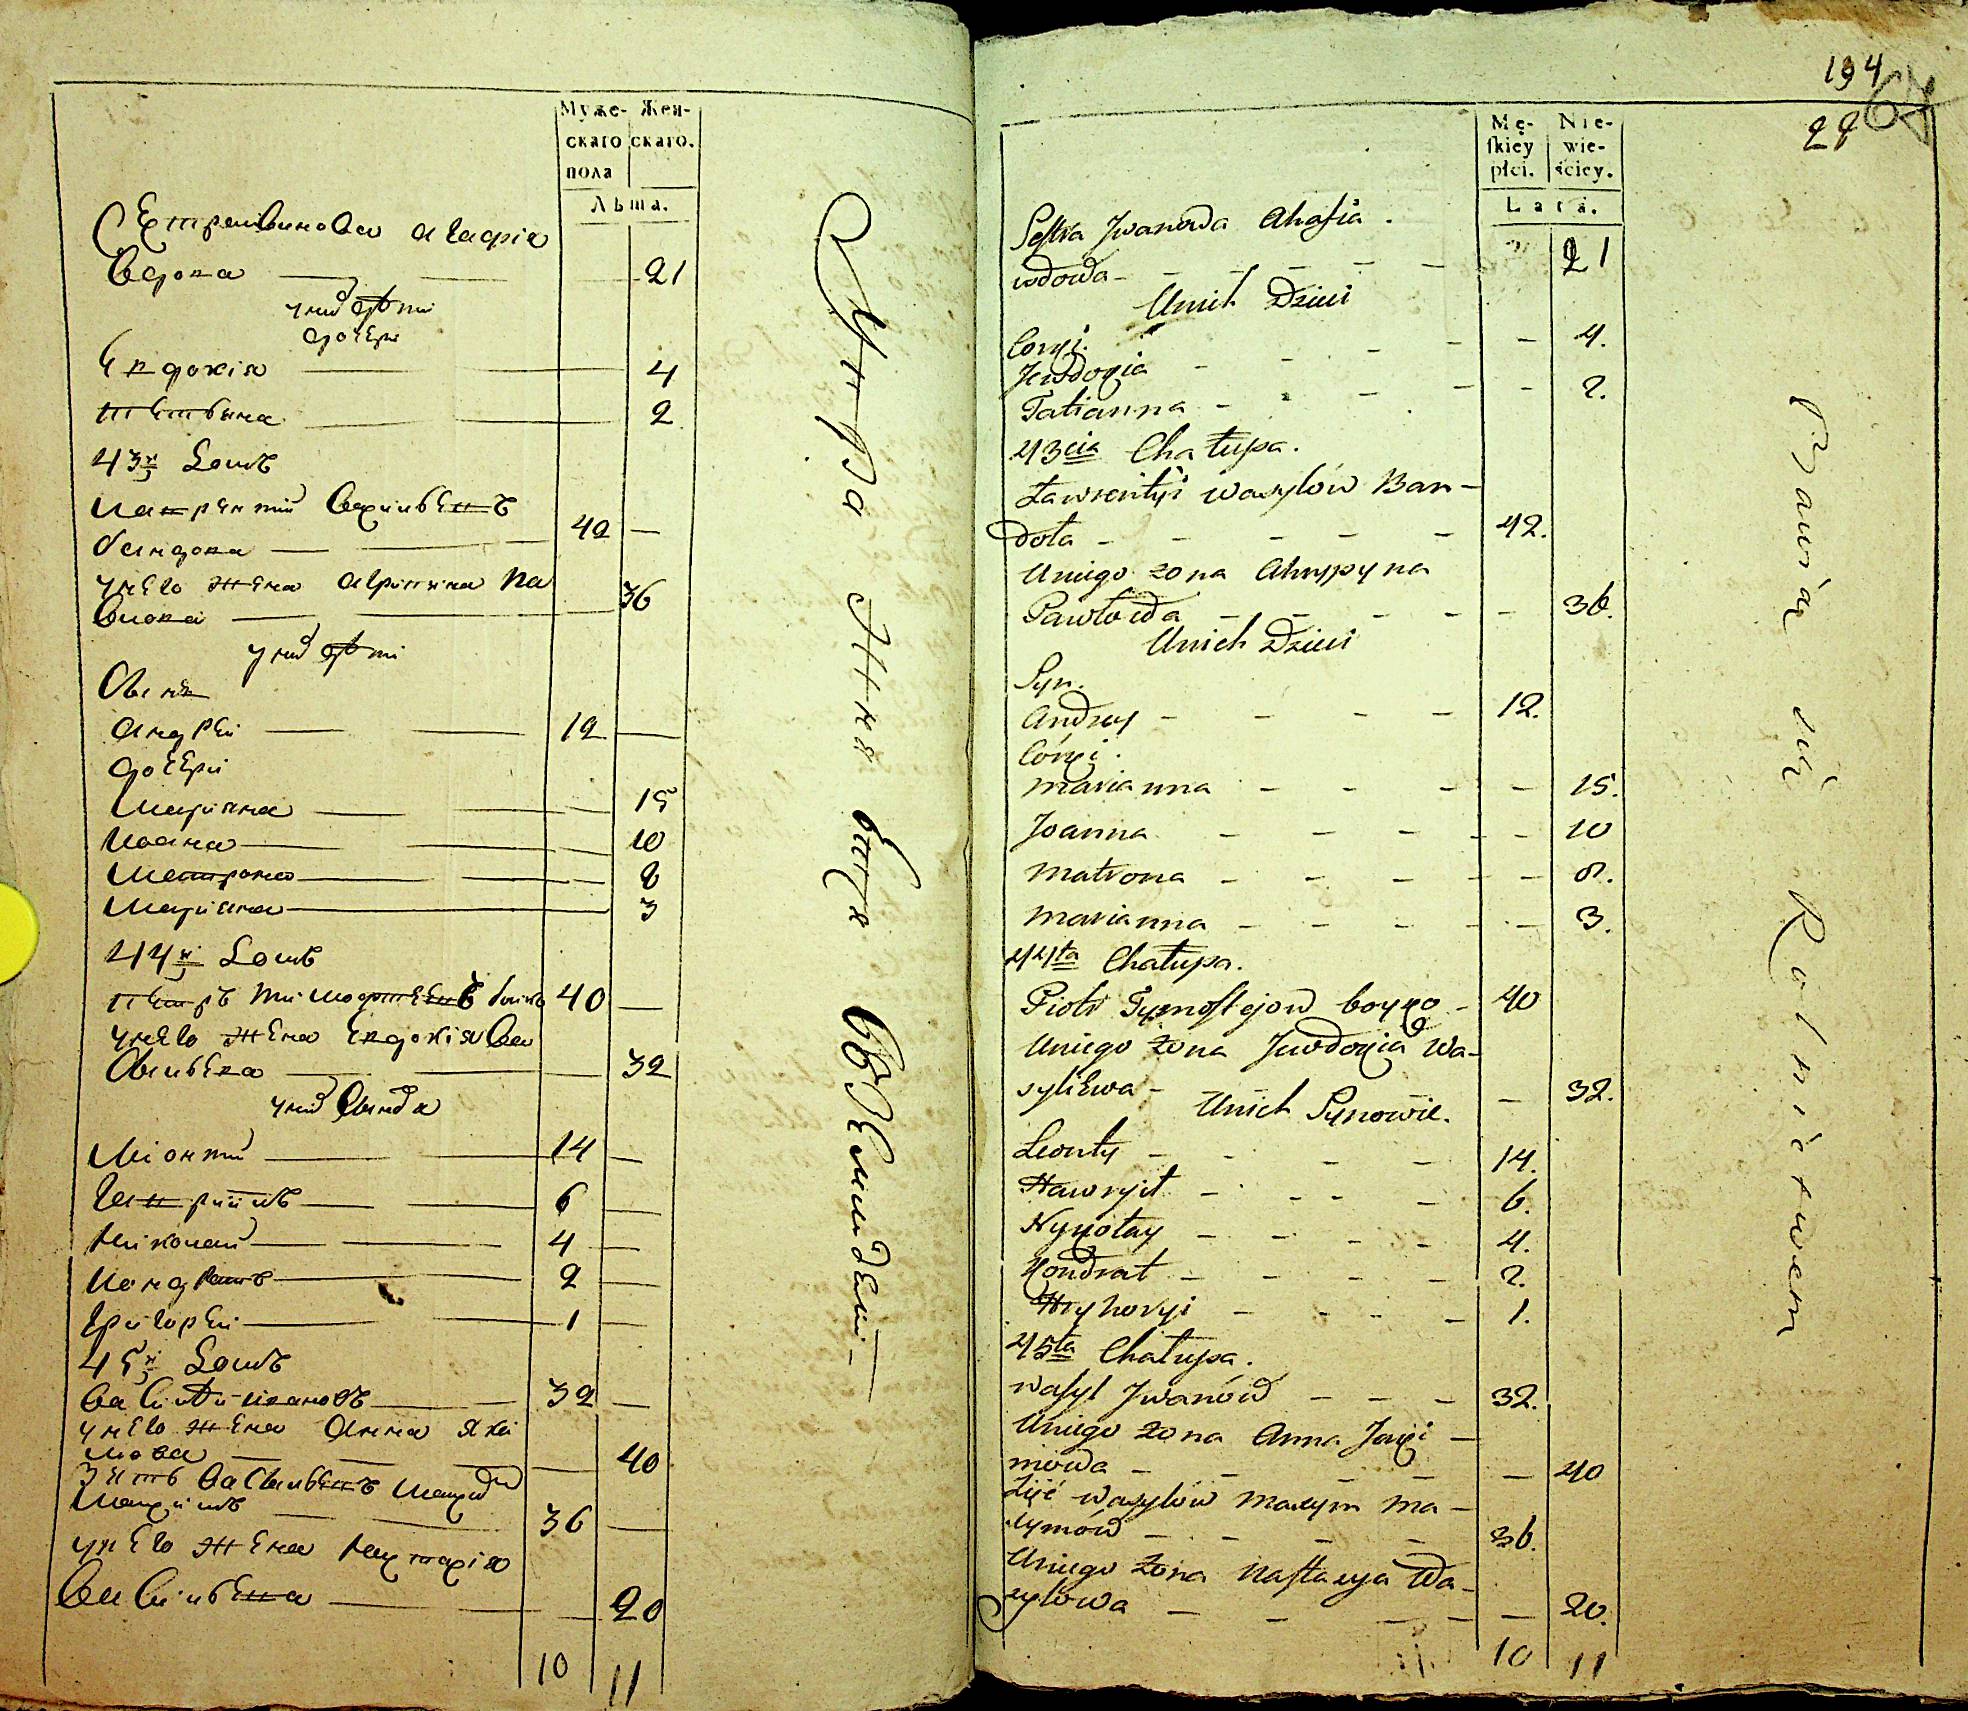 Муже- Жен-
скаго скаго.
пола
Лѣта.
Сестра Иванова Агафія
вдова 21
у них дѣти
дочери
Евдокія 4
Тетьяна 2
43й Домъ
Лаврентій Василѣевъ
бандола 42 —
у него жена Агрипина Па
влова 36
у них дѣти
Сынъ
Андрей 12 —
дочери
Маріяна 15
Иоана 10
Матрона 8
Маріяна 3
44й Домъ
Петръ Тимофтеевъ боико 40 —
у него жена Евдокія Ва
сильева 32
у них Синовя
Ліонтий 14 —
Гавриилъ 6 —
Николай 4 —
Кондратъ 2 —
Григорей 1 —
45й Домъ
Василий ивановъ 32 —
у него жена Анна Яки
мова 40
Зять Васильевъ Макъсим
Макъсимовъ 36 —
у него жена Настасія
Васильева 20
10 11
Упражняются в Земледелии
194
67
27
Mę- Nie-
skiey wie-
płci. ściey.
Lata.
Sestra Jwanowa Ahafia
wdowa - 21
Unich Dzieci
Corki.
Jewdokia - 4.
Tatianna - 2.
43cia Chałupa.
Ławrentyi wasylow Ban-
doła - 42.
Uniego żona Ahrypyna
Pawłowa - 36.
Unich Dzieci
Syn.
Andrey - 12.
Córki.
marianna - 15.
Joanna - 10
matrona - 8.
marianna - 3.
44ta Chałupa.
Piotr Tymoftejow boyko - 40
Uniego żona Jewdokia Wa-
syliewa - 32.
Unich Synowie.
Leonty - 14.
Hawryił - 6.
Nykołay - 4.
Kondrat - 2.
Hryhoryi - 1.
45ta Chałupa.
wasyl Jwanów - 32.
Uniego żona Anna Jaki-
mowa - 40
Zięć wasylów maxym ma-
xymów - 36.
Uniego żona nastasya Wa-
sylowa - 20.
10 11
Bawią się Rolnictwem